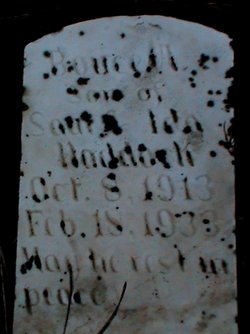 son of
Haddock
Oct. 8, 1913
Feb. 18, 1933
May he rest in
peace